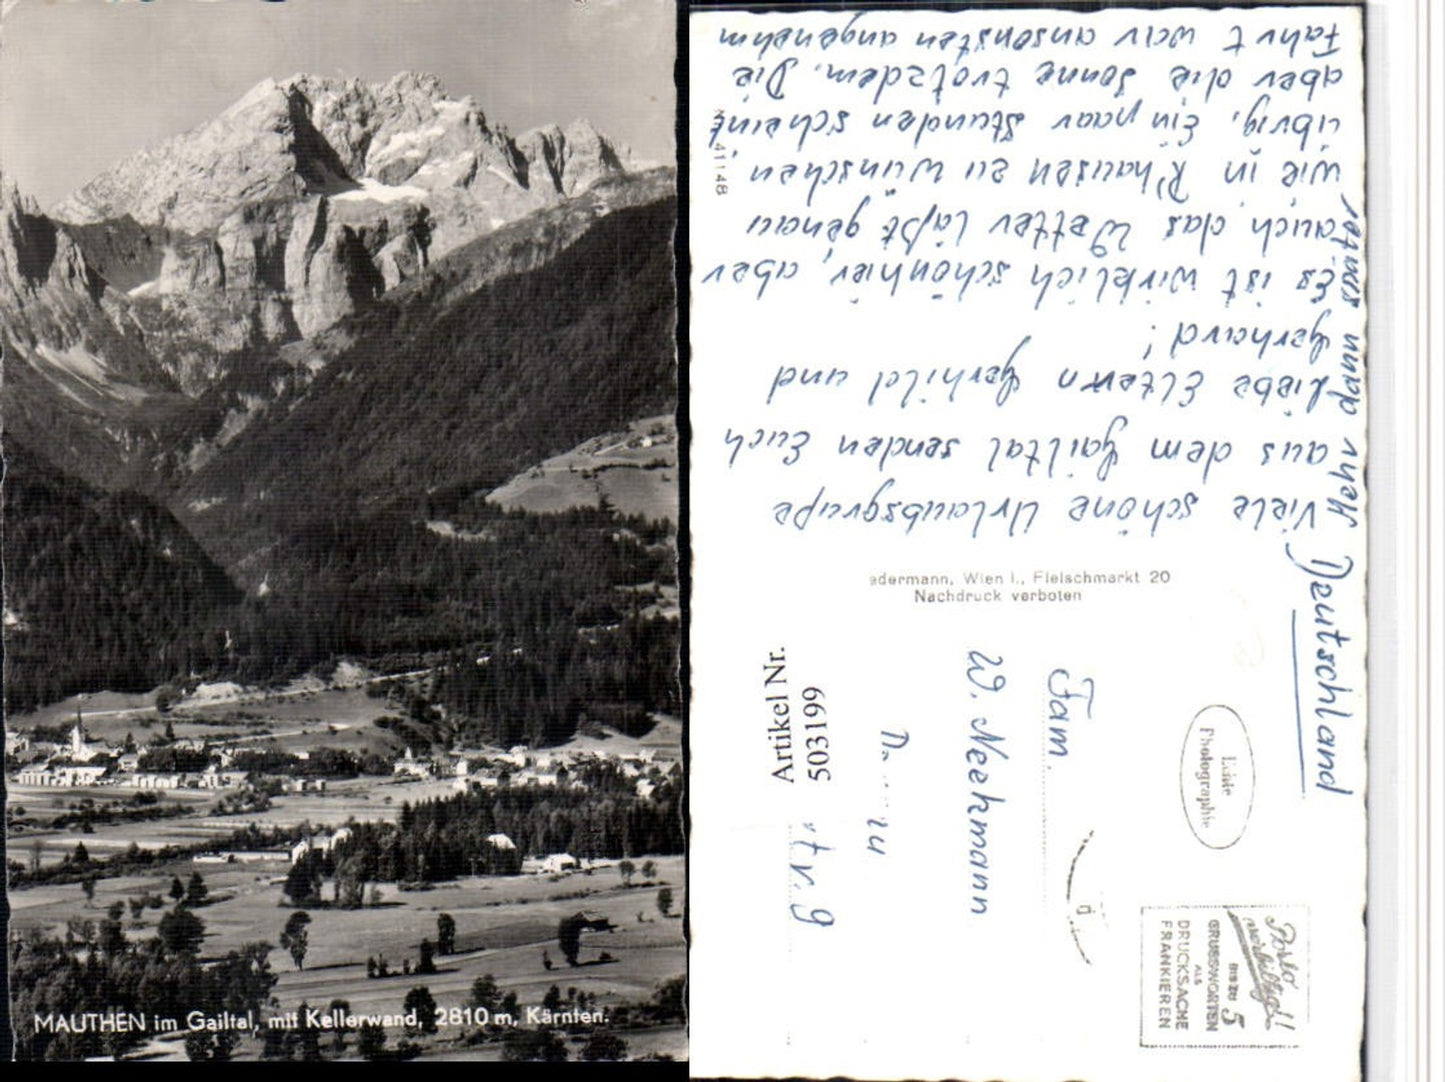 MAUTHEN im Gailtal, mit Kellerwand, 2810 m, Kärnten.
Viele schöne Urlaubsgrüße
aus dem Gailtal senden Euch
Liebe Eltern Gerhild und
Gerhard!
Es ist wirklich schön hier, aber
auch das Wetter läßt genau
wie in R'hausen zu wünschen
übrig. Ein paar Stunden scheint
aber die Sonne trotzdem. Die
Fahrt war ansonsten angenehm
Mehr dann später
41148
edermann, Wien I., Fleischmarkt 20
Nachdruck verboten
Artikel Nr.
503199
Fam.
W. Neekmann
str. 9
Deutschland
Echte
Photographie
Porto
verbilligt!!
BIS ZU 5
GRUSSWORTEN
ALS
DRUCKSACHE
FRANKIEREN